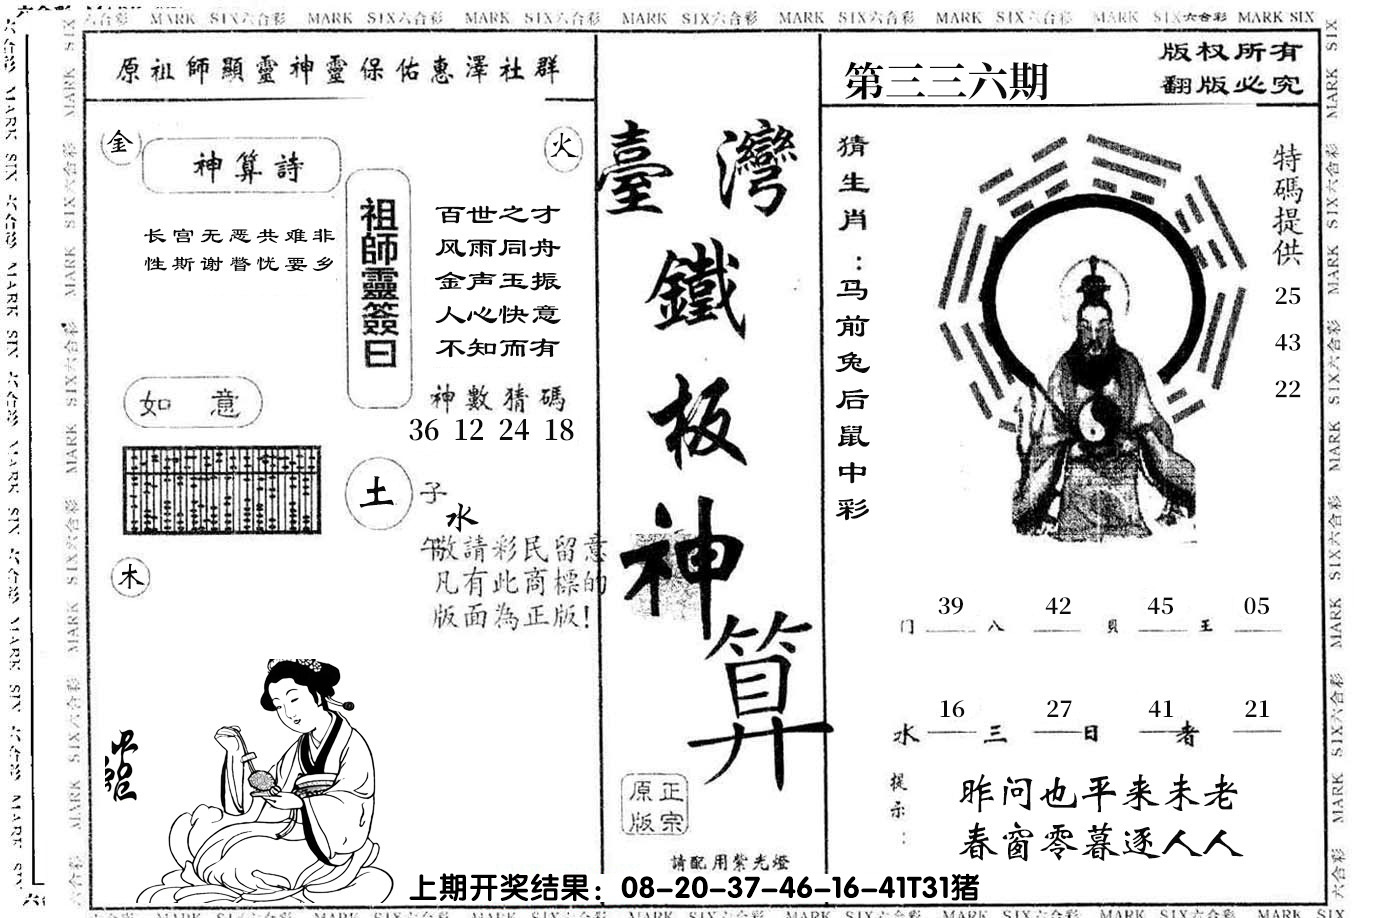 MARK SIX六合彩 MARK SIX六合彩 MARK SIX六合彩 MARK SIX六合彩 MARK SIX六合彩 MARK SIX六合彩 MARK SIX六合彩 MARK SIX
原祖師顯靈神靈保佑惠澤社群
金
神算詩
火
长宫无恶共难非
性斯谢瞥忧要乡
祖師靈簽曰
百世之才
风雨同舟
金声玉振
人心快意
不知而有
神數猜碼
36 12 24 18
如意
土
子
水
午
敬請彩民留意
凡有此商標的
版面為正版!
木
臺灣
鐵
板
神
算
正宗
原版
請配用紫光燈
第三三六期
版权所有
翻版必究
猜生肖:马前兔后鼠中彩
特碼提供
25
43
22
39 42 45 05
门 八 貝 王
16 27 41 21
水 三 日 者
提示:
昨问也平来未老
春窗零暮逐人人
上期开奖结果：08-20-37-46-16-41T31猪